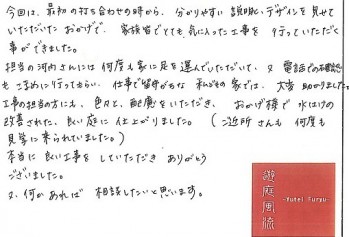 今回は、最初の打ち合わせの時から、分かりやすい説明と、デザインを見せて
いただいたおかげで、家族皆でとても気に入った工事を行っていただく
事ができました。
担当の河内さんには何度も家に足を運んでいただいて、又電話での確認
もこまめに行ってもらい、仕事で留守がちな私共の家では、大変助かりました。
工事の担当の方にも、色々と配慮をいただき、おかげ様で水はけの
改善された、良い庭に仕上がりました。(ご近所さんも何度も
見学に来られていました。)
本当に良い工事をしていただきありがとう
ございました。
又、何かあれば相談したいと思います。
遊庭風流
-Yutei Furyu-